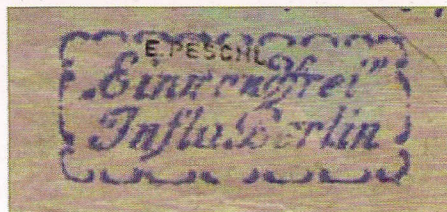 E. PESCHL
„Einwandfrei"
Infla Berlin